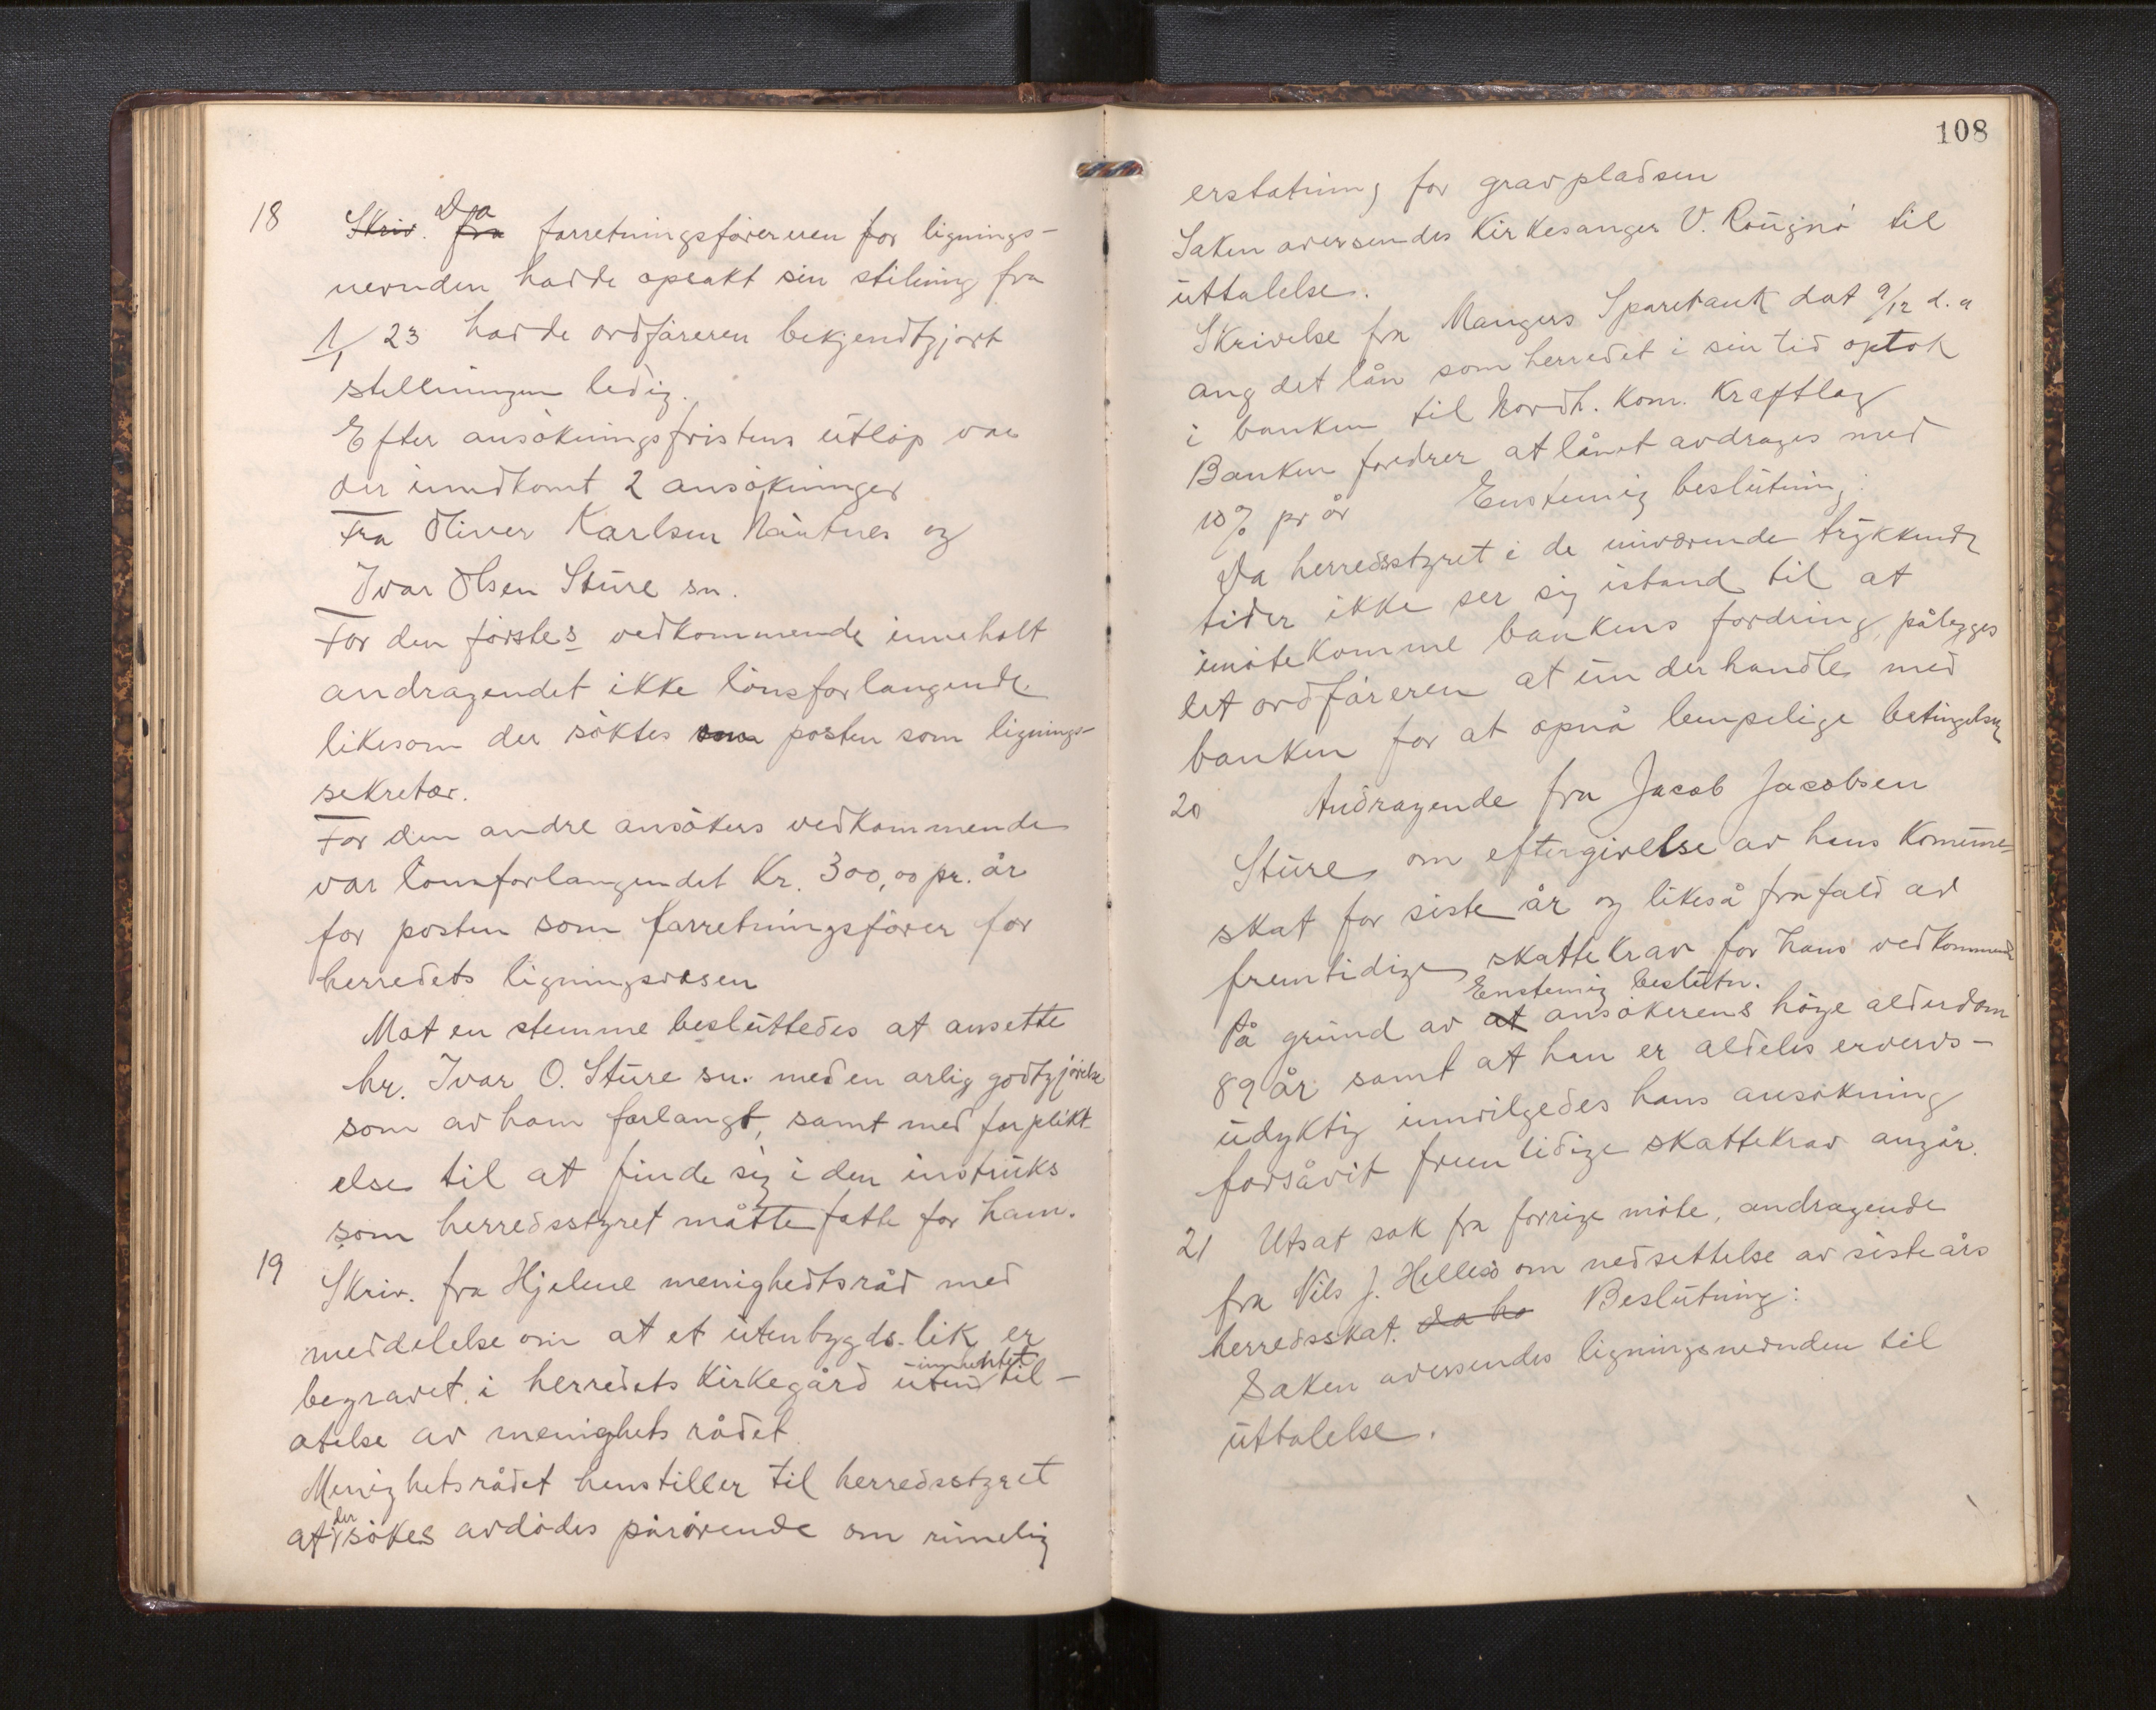 18 Skriv. fra Da forretningsføreren for lignings-
nevnden hadde opsakt sin stilling fra
1/1 23 hadde ordføreren bekjendtgjort
stellningen ledig.
Efter ansøkningsfristens utløp var
der inndkomt 2 ansøkninger
Fra Oliver Karlsen Nautnes og
Ivar Olsen Sture sn.
For den førstes vedkommende inneholt
andragendet ikke lønsforlangende
likesom der søktes som posten som lignings-
sekretær.
For den andre ansøkers vedkommende
var lønsforlangendet Kr. 300,00 pr. år
for posten som forretningsfører for
herredets ligningsvesen
Mot en stemme besluttedes at ansette
hr. Ivar O. Sture sn. med en årlig godtgjørelse
som av ham forlangt, samt med forplikt-
else til at finde sig i den instruks
som herredsstyret måtte fatte for ham.
19 Skriv. fra Hjelme menighedtsråd med
meddelelse om at et utenbygds lik er
begravet i herredets Kirkegård uten innhentet til-
atelse av menighets rådet
Menighetsrådet henstiller til herredsstyret
at der søkes avdødes pårørende om rimelig
108
erstatning for gravpladsen
Saken oversendes Kirkesanger V. Rougnø til
uttalelse.
Skrivelse fra Mangers Sparebank dat 9/12 d. a
ang det lån som herredet i sin tid optok
i banken til Nordh. Kom. Kraftlag
Banken fordrer at lånet avdrages med
10% pr år Enstemig beslutning:
Da herredsstyret i de nuværende trykkende
tider ikke ser sig istand til at
imøtekomme bankens fordring, pålegges
det ordføreren at underhandle med
banken for at opnå lempelige betingelser
20 Andragende fra Jacob Jacobsen
Sture om eftergivelse av hans Komune-
skat for siste år og likeså frafald av
fremtidige skattekrav for hans vedkommende
Enstemig beslutn.
På grund av at ansøkerens høye alderdom
89 år samt at han er aldeles ervervs-
udyktig innvilgedes hans ansøkning
forsåvit fremtidige skattekrav angår.
21 Utsat sak fra forrige møte, andragende
fra Nils J. Hellesø om nedsettelse av siste års
herredsskat. Da ha Beslutning:
Saken oversendes ligningsnevnden til
uttalelse.